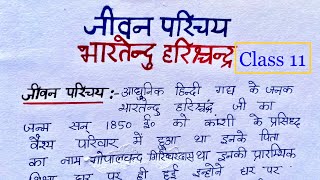 जीवन परिचय
भारतेन्दु हरिश्चन्द्र
Class 11
जीवन परिचय :- आधुनिक हिन्दी गद्य के जनक
भारतेन्दु हरिश्चंद्र जी का
जन्म सन् 1850 ई० को काशी के प्रसिद्ध
वैश्य परिवार में हुआ था इनके पिता
का नाम गोपालचन्द्र गिरिधरदास था इनकी प्रारम्भिक
शिक्षा घर पर ही हुई इन्होंने घर पर